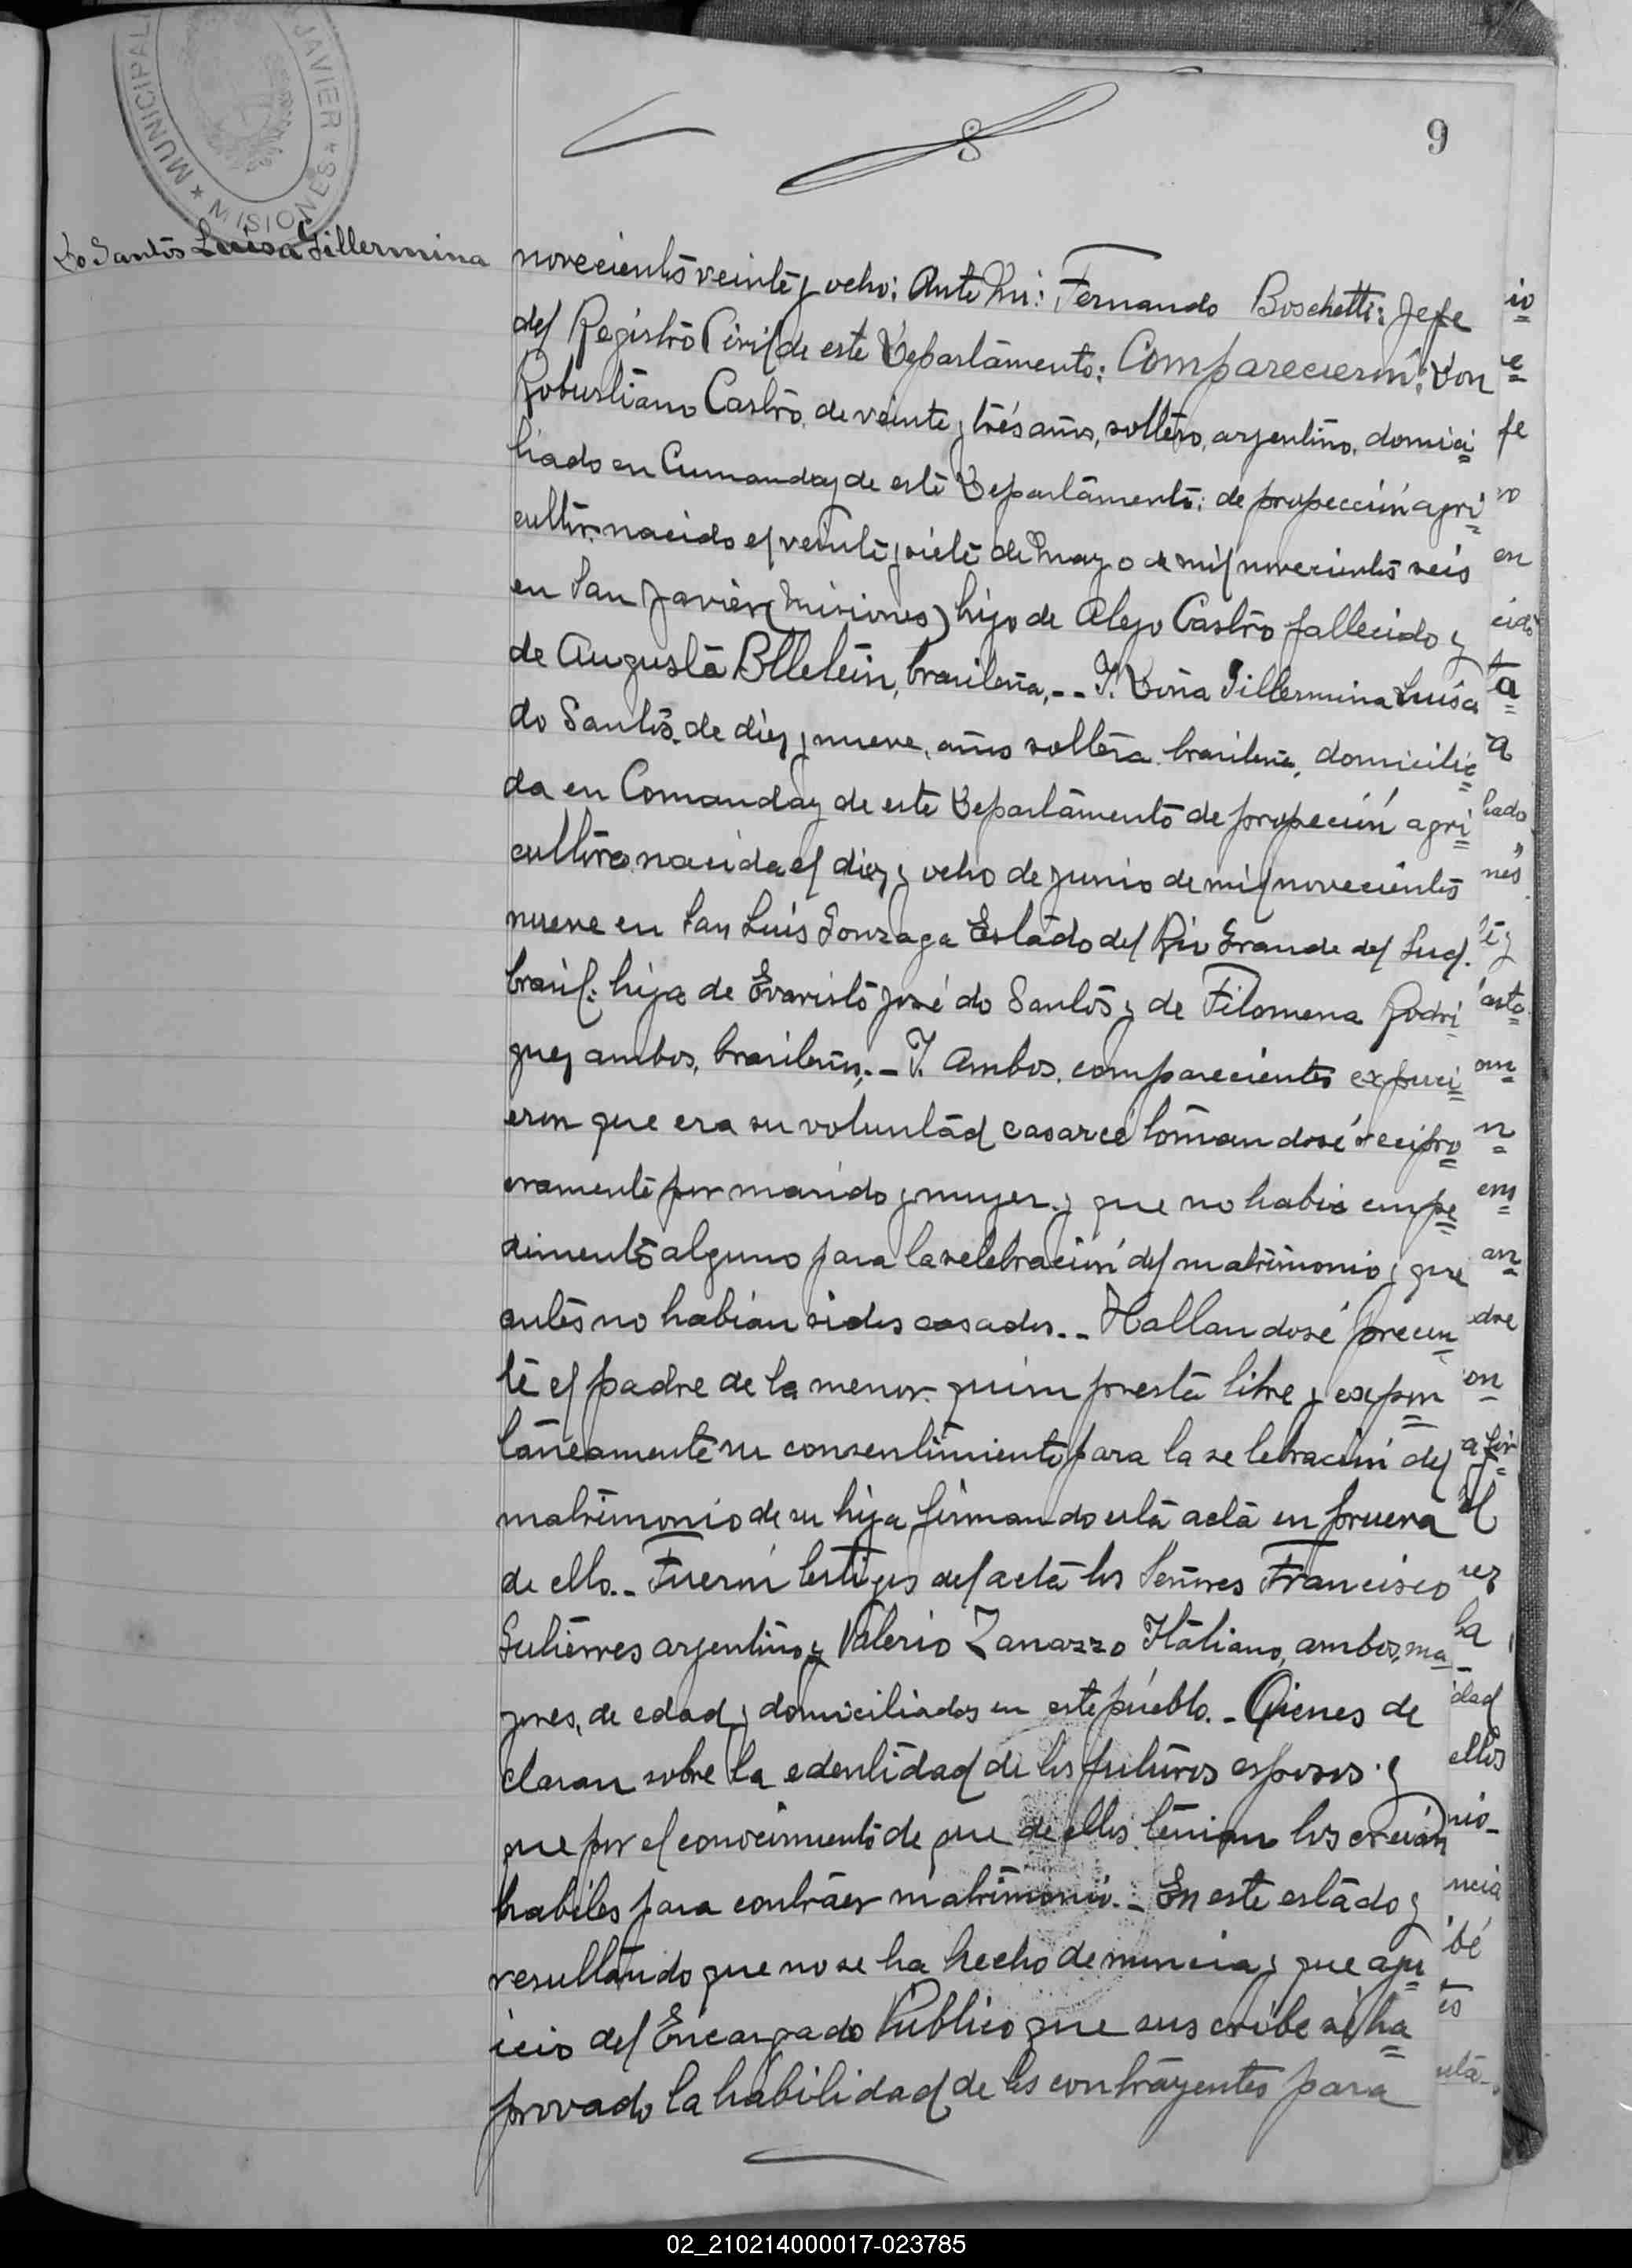 MUNICIPAL
JAVIER
★ MISIONES ★
9
Do Santos Luisa Gillermina
novecientos veinte y ocho: Ante Mi: Fernando Boschetti: Jefe
del Registro Civil de este Departamento: Comparecieron: Don
Robustiano Castro, de veinte y trés años, soltero, argentino, domici
liado en Cumanday de este Departamento: de propección agri
cultor nacido el veinte y siete de Mayo de mil novecientos seis
en San Javier (Misiones) hijo de Alejo Castro fallecido y
de Augusta Bllelein, brasileña, -- Y. Doña Gillermina Luisa
do Santos, de diez y nueve, años soltera brasileña, domicilia
da en Comanday de este Departamento de propeción agri
cultora nacida el diez y ocho de junio de mil novecientos
nueve en San Luis Gonzaga Estado del Rio Grande del Sud.
brasil: hija de Evaristo José do Santos y de Filomena Rodri
guez ambos, brasileños. - Y. Ambos, comparecientes expuci
eron que era su voluntad casarcé tomandosé recipro
camente por marido y mujer. y que no habia empe
dimento alguno para la selebración del matrimonio y que
antes no habian sidos casados. -- Hallandosé precen
te el padre de la menor quien presta libre y expon
táneamente su consentimiento para la selebración del
matrimonio de su hija firmando esta acta en prueva
de ello. - Fuerón testigos del acta los Señores Francisco
Gutiérres argentino y Valerio Zanazzo Italiano, ambos, ma
yores, de edad y domiciliados en este puéblo. - Qienes de
claran sobre la edentidad de los futuros esposos y
que por el conocimiento de que de ellos tenian los creián
habiles para contráer matrimonio. - En este estado y
resultando que no se ha hecho denuncia y que aju
icio del Encargado Público que suscribe se ha
provado la habilidad de los contrayentes para
02_210214000017-023785